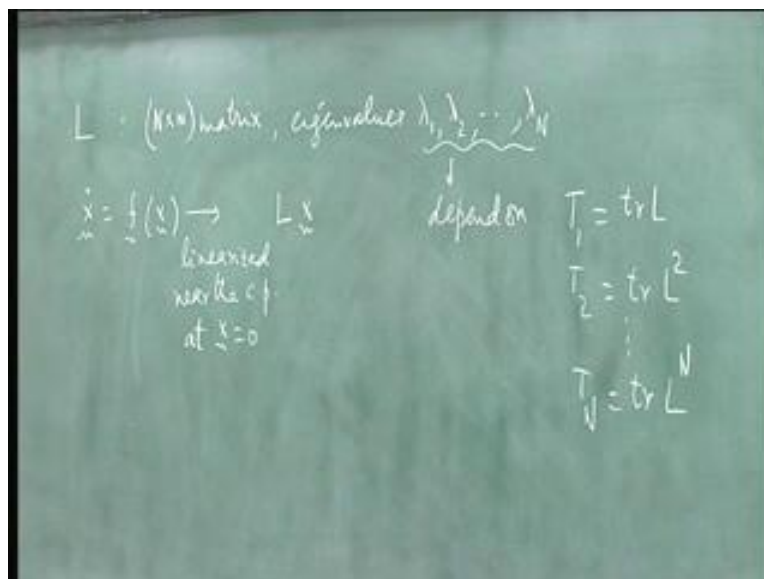 L : (N×N) matrix, eigenvalues λ₁, λ₂, ..., λ_N
ẋ = f(x) → L x
linearized
near the c.p.
at x = 0
depend on
T₁ = tr L
T₂ = tr L²
⋮
T_N = tr L^N